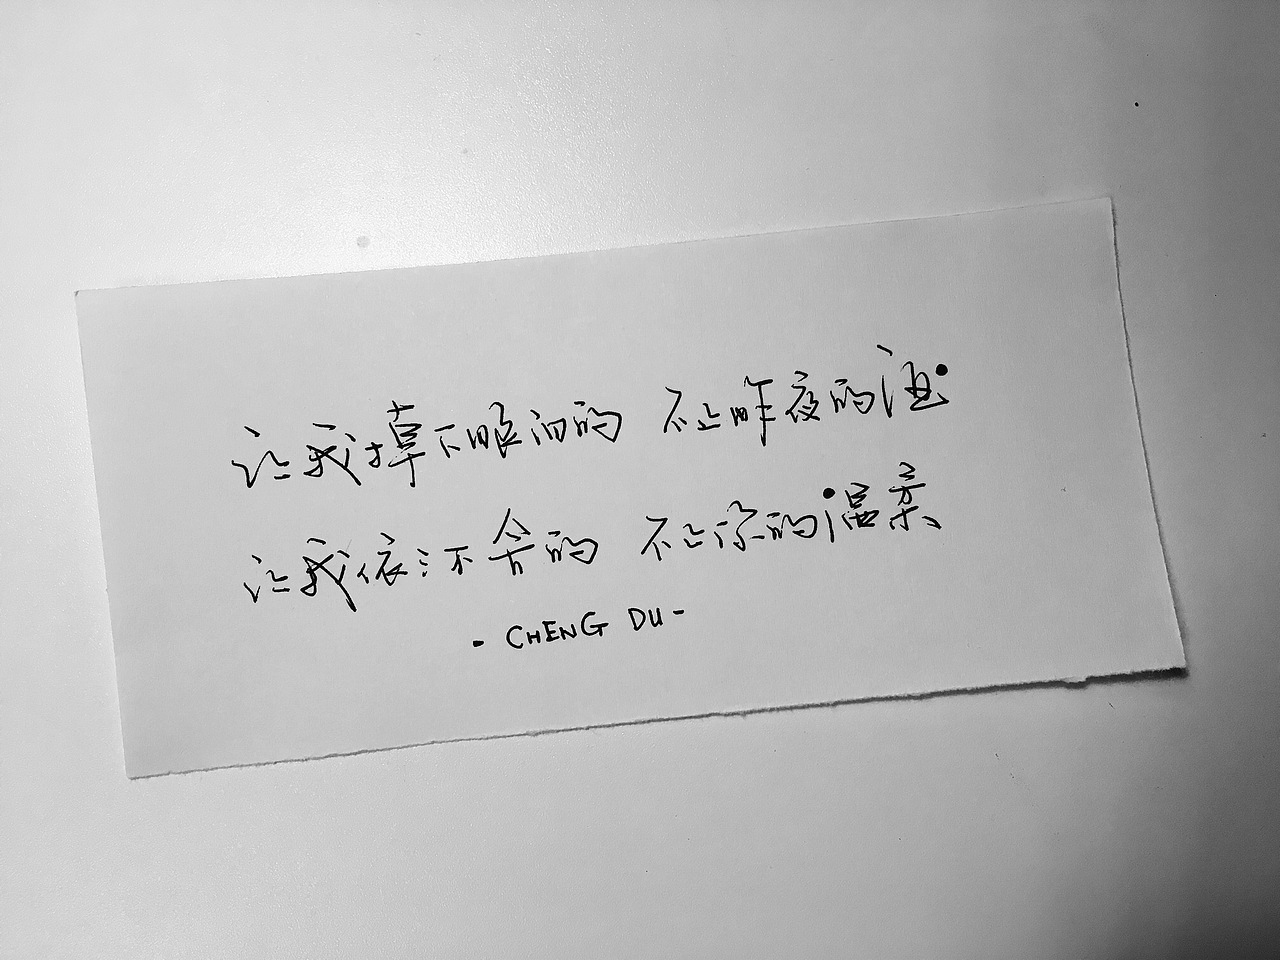 让我掉下眼泪的 不止昨夜的酒
让我依依不舍的 不止你的温柔
- CHENG DU -